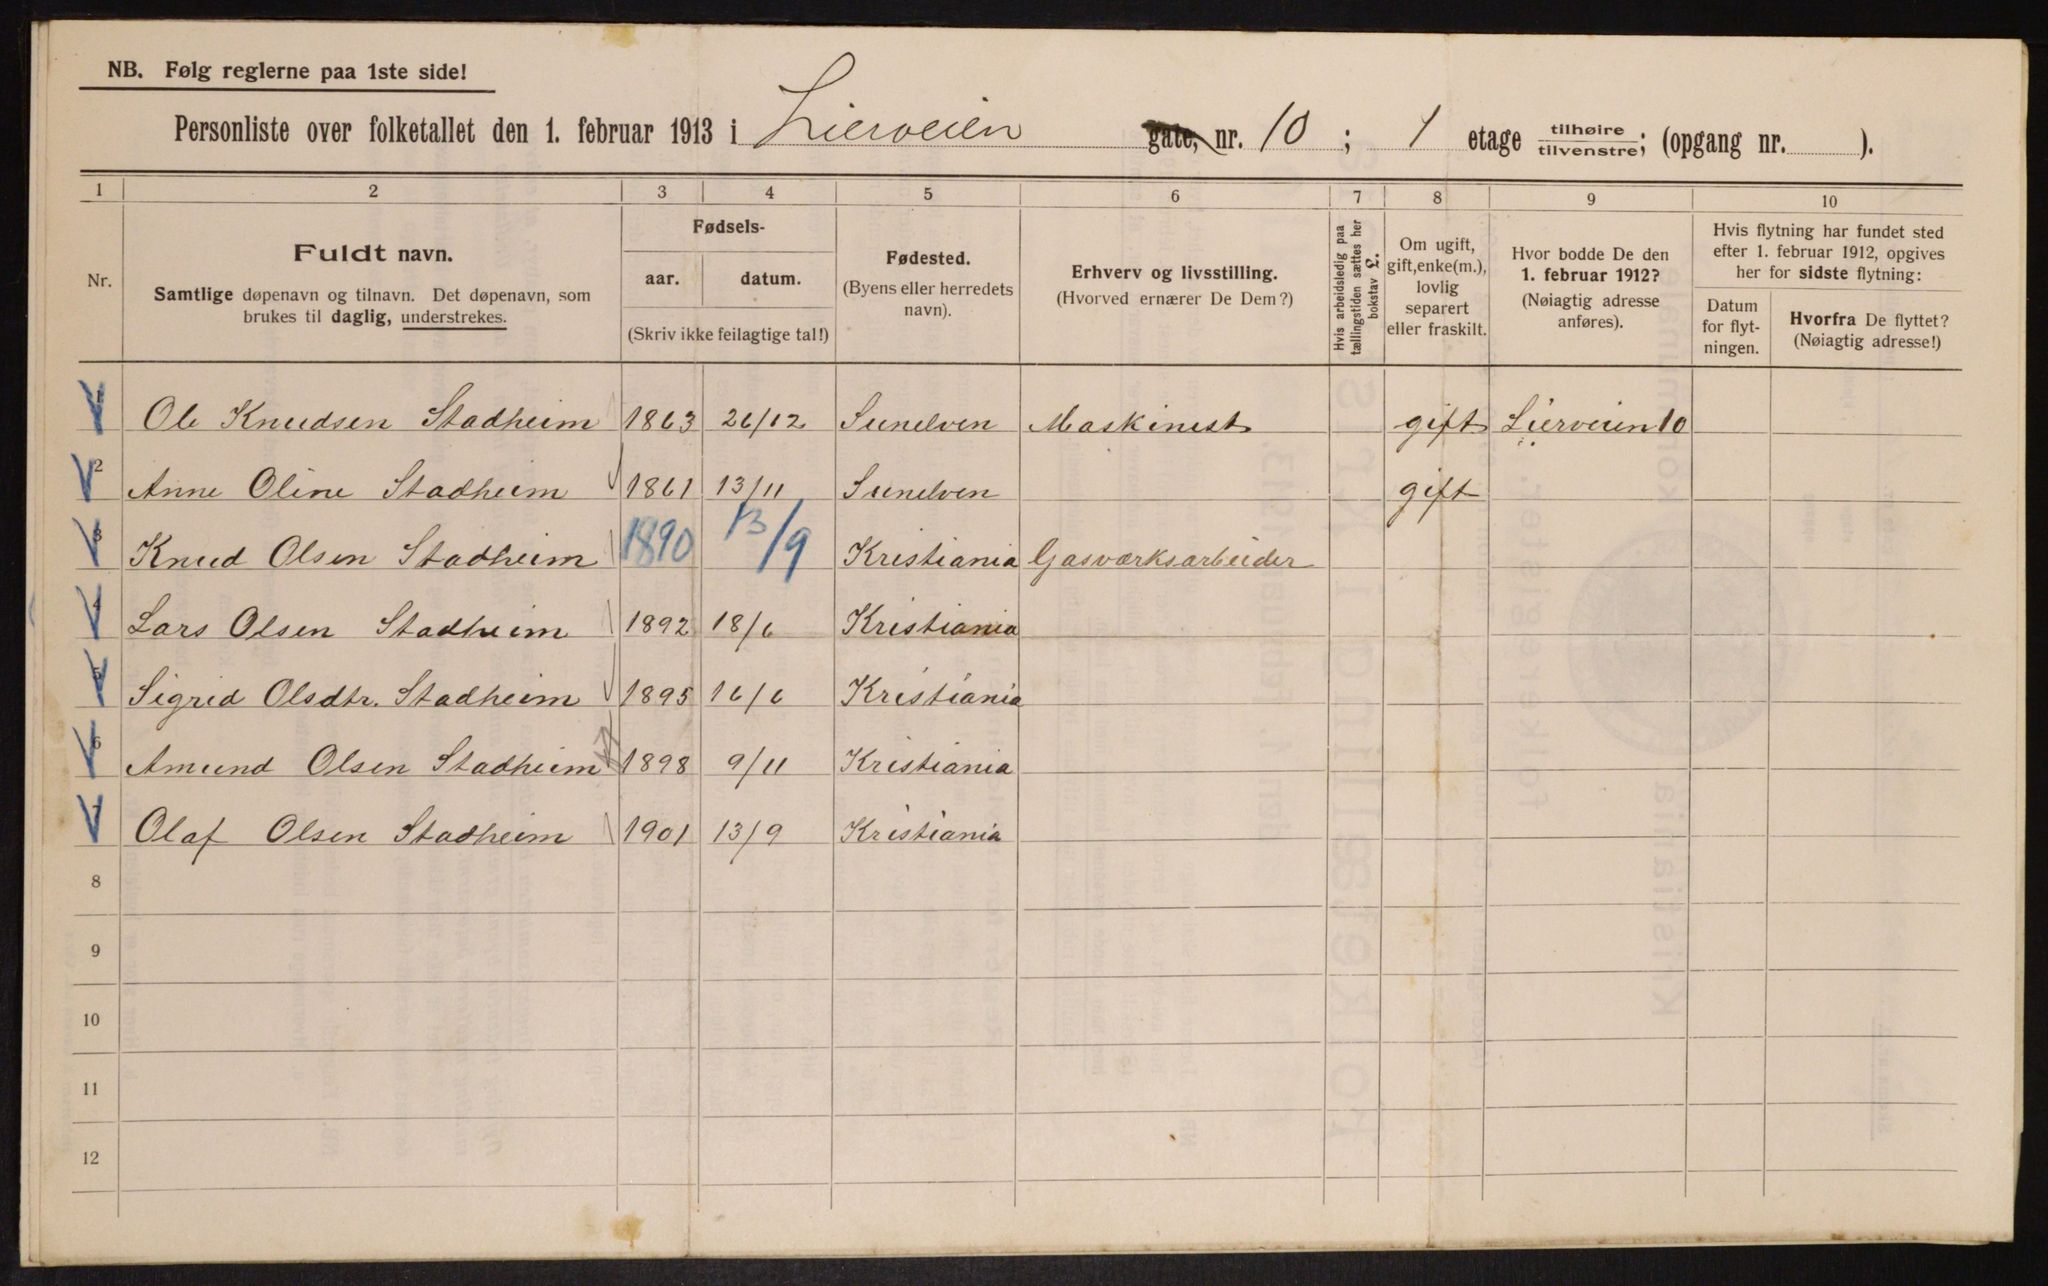 NB. Følg reglerne paa 1ste side!
Personliste over folketallet den 1. februar 1913 i Lierveien gate, nr. 10 ; 1 etage tilhøire/tilvenstre; (opgang nr. ).
1 2 3 4 5 6 7 8 9 10
Nr.
Fuldt navn.
Samtlige døpenavn og tilnavn. Det døpenavn, som
brukes til daglig, understrekes.
Fødsels-
aar. datum.
(Skriv ikke feilagtige tal!)
Fødested.
(Byens eller herredets
navn).
Erhverv og livsstilling.
(Hvorved ernærer De Dem?)
Hvis arbeidsledig paa
tællingstiden sættes her
bokstav L.
Om ugift,
gift, enke(m.),
lovlig
separert
eller fraskilt.
Hvor bodde De den
1. februar 1912?
(Nøiagtig adresse
anføres).
Hvis flytning har fundet sted
efter 1. februar 1912, opgives
her for sidste flytning:
Datum
for flyt-
ningen.
Hvorfra De flyttet?
(Nøiagtig adresse!)
1 Ole Knudsen Stadheim 1863 26/12 Sunelven Maskinist gift Lierveien 10
2 Anne Oline Stadheim 1861 13/11 Sunelven gift
3 Knud Olsen Stadheim 1890 13/9 Kristiania Gasværksarbeider
4 Lars Olsen Stadheim 1892 18/6 Kristiania
5 Sigrid Olsdtr. Stadheim 1895 16/6 Kristiania
6 Amund Olsen Stadheim 1898 9/11 Kristiania
7 Olaf Olsen Stadheim 1901 13/9 Kristiania
8
9
10
11
12